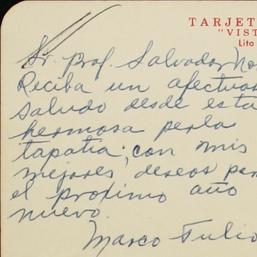 TARJET
"VIST
Lito
Sr. Prof. Salvador No
Reciba un afectuos
saludo desde esta
hermosa perla
tapatia; con mis
mejores deseos par
el proximo año
nuevo.
Marco Tulio